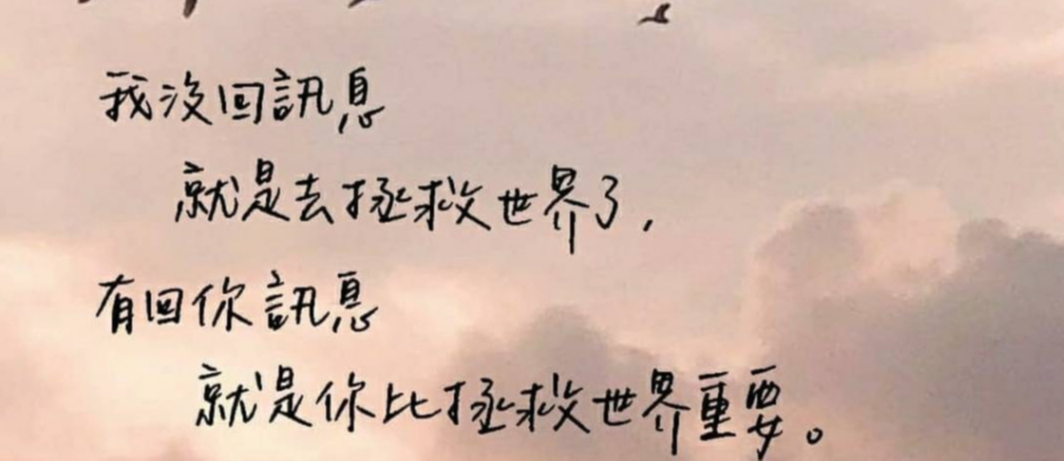 我沒回訊息
就是去拯救世界了,
有回你訊息
就是你比拯救世界重要。